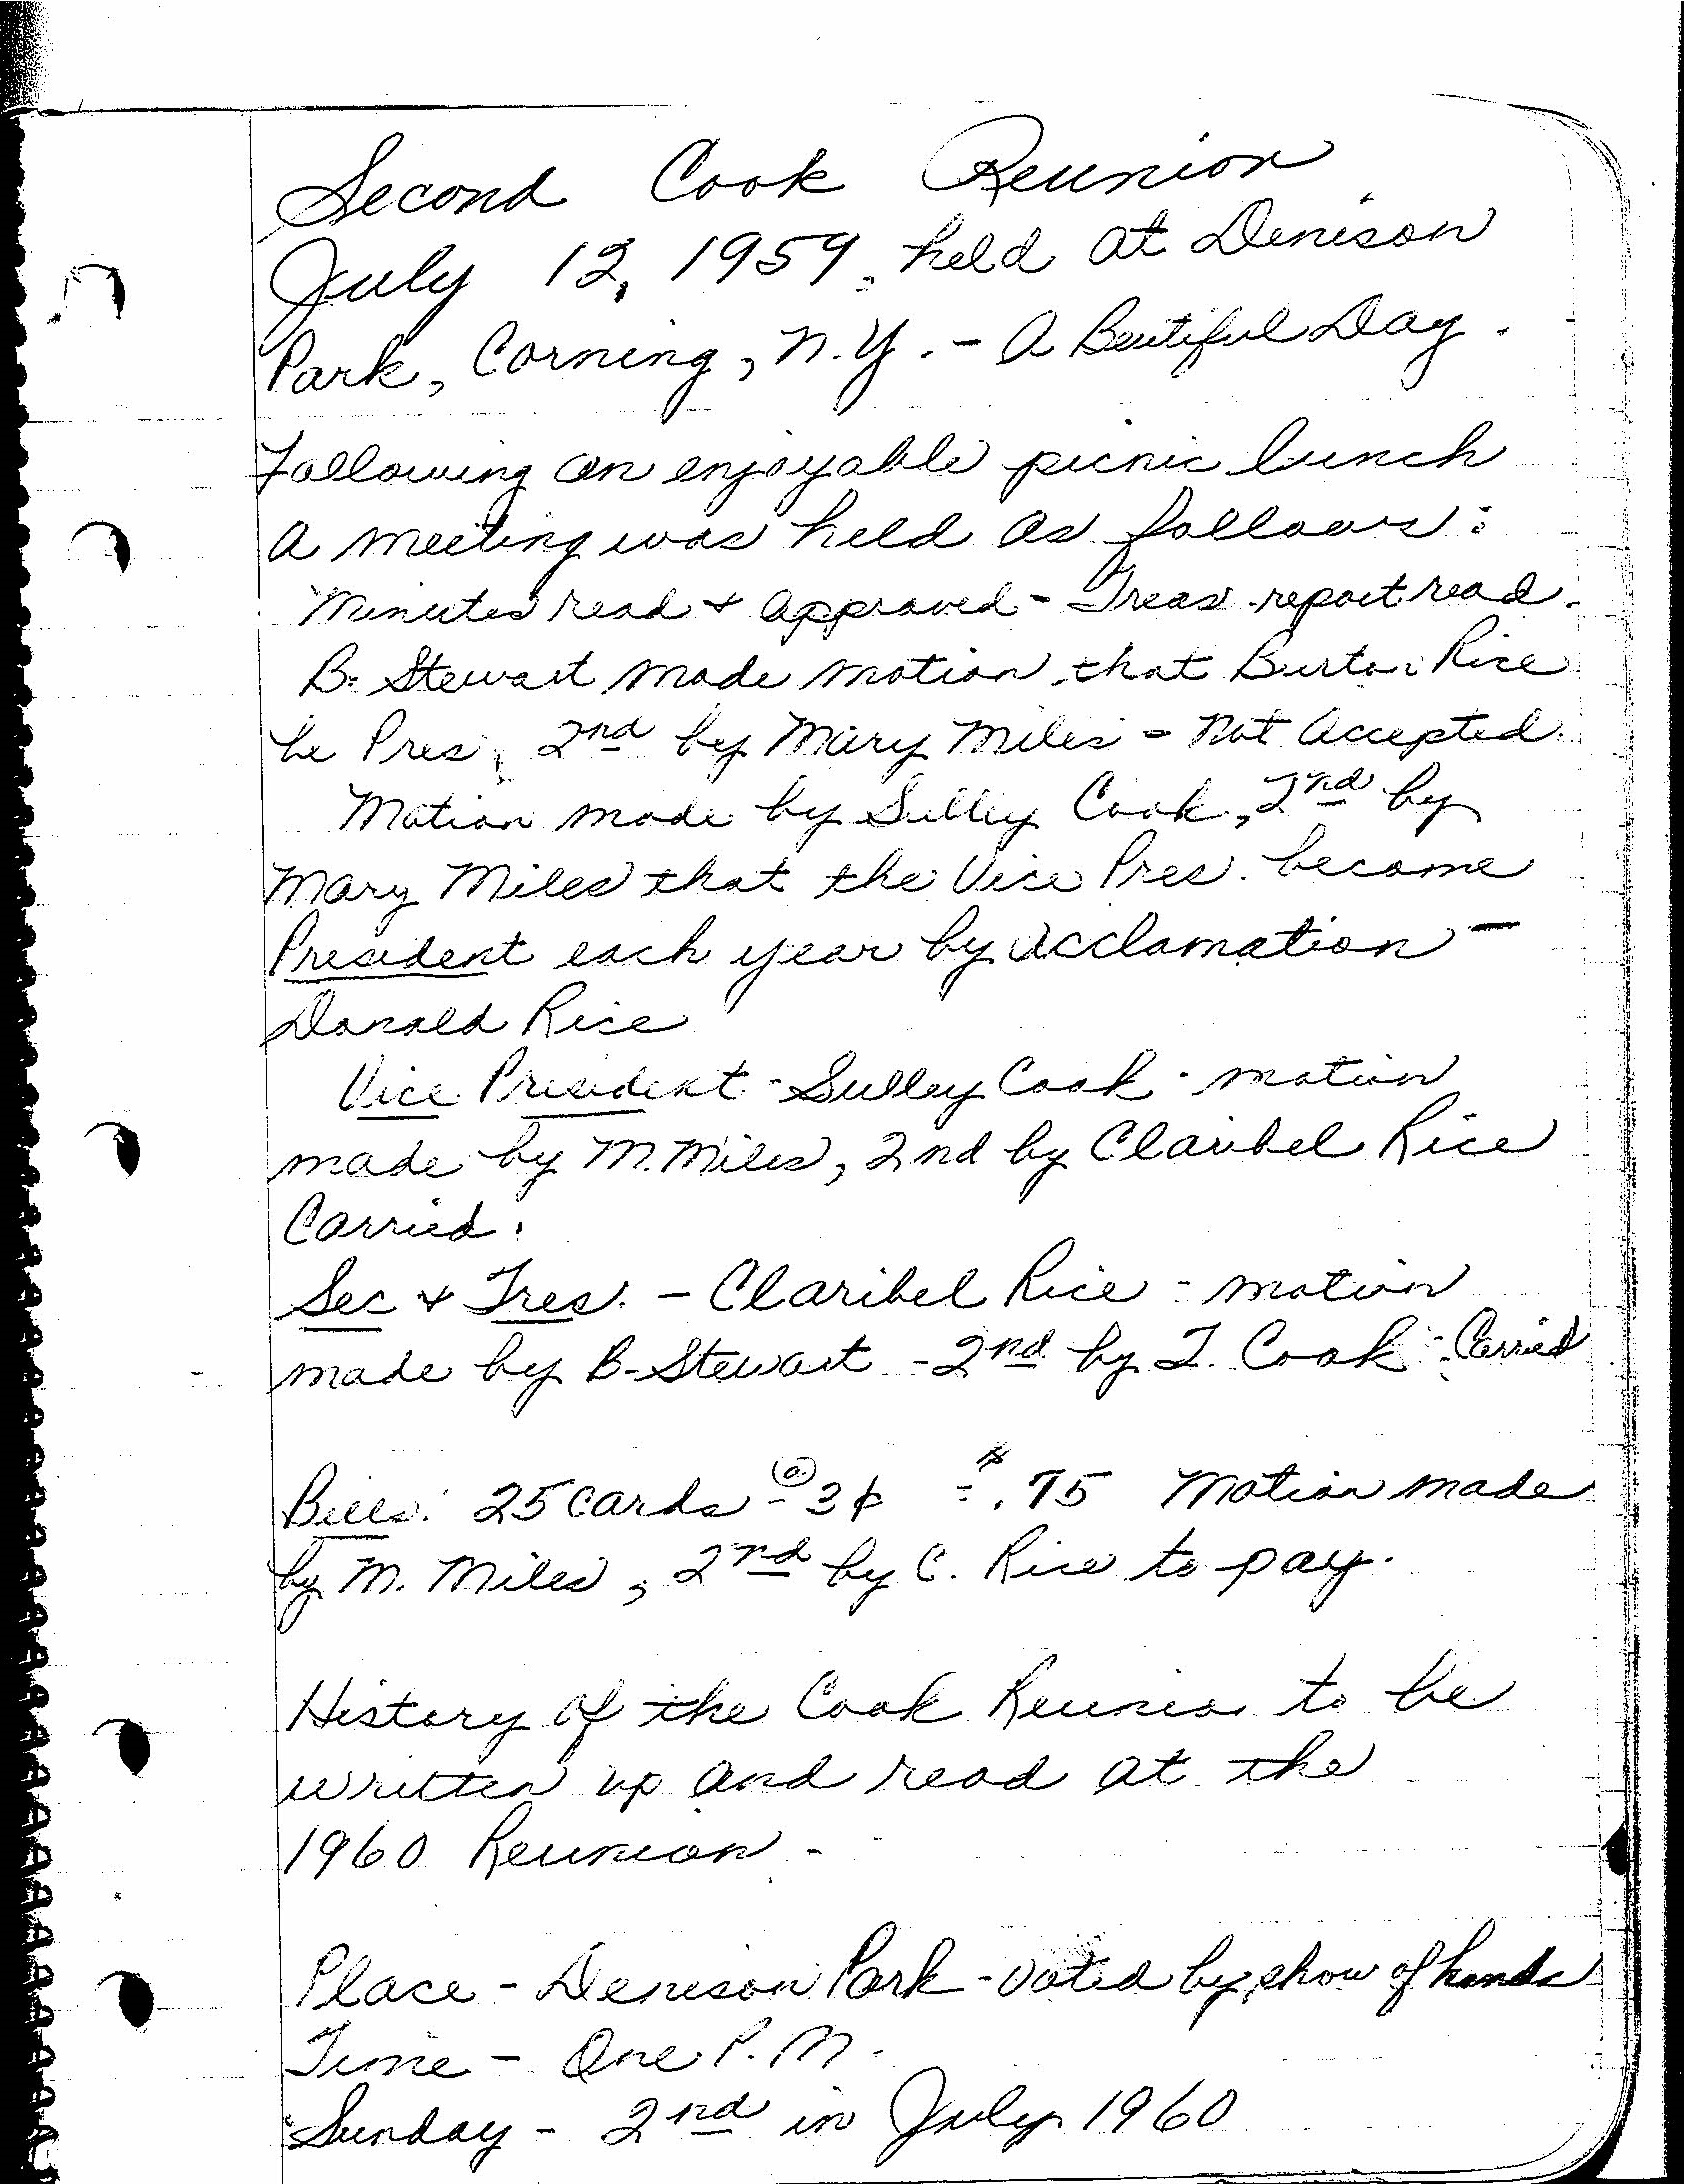 Second Cook Reunion
July 12, 1959, held at Denison
Park, Corning, N.Y. - A Beutiful Day.
Following an enjoyable picnic lunch
a meeting was held as follows:
Minutes read + approved - Treas. report read.
B. Stewart made motion that Burton Rice
be Pres, 2nd by Mary Miles - Not Accepted.
Motion made by Sulley Cook, 2nd by
Mary Miles that the Vice Pres. become
President each year by acclamation -
Donald Rice
Vice President - Sulley Cook - motion
made by M. Miles, 2nd by Claribel Rice
Carried.
Sec + Tres. - Claribel Rice - motion
made by B. Stewart - 2nd by T. Cook - Carried
Bills: 25 cards @ 3¢ = $.75 Motion made
by M. Miles, 2nd by C. Rice to pay.
History of the Cook Reunion to be
written up and read at the
1960 Reunion -
Place - Denison Park - voted by show of hands
Time - One P.M.
Sunday - 2nd in July 1960